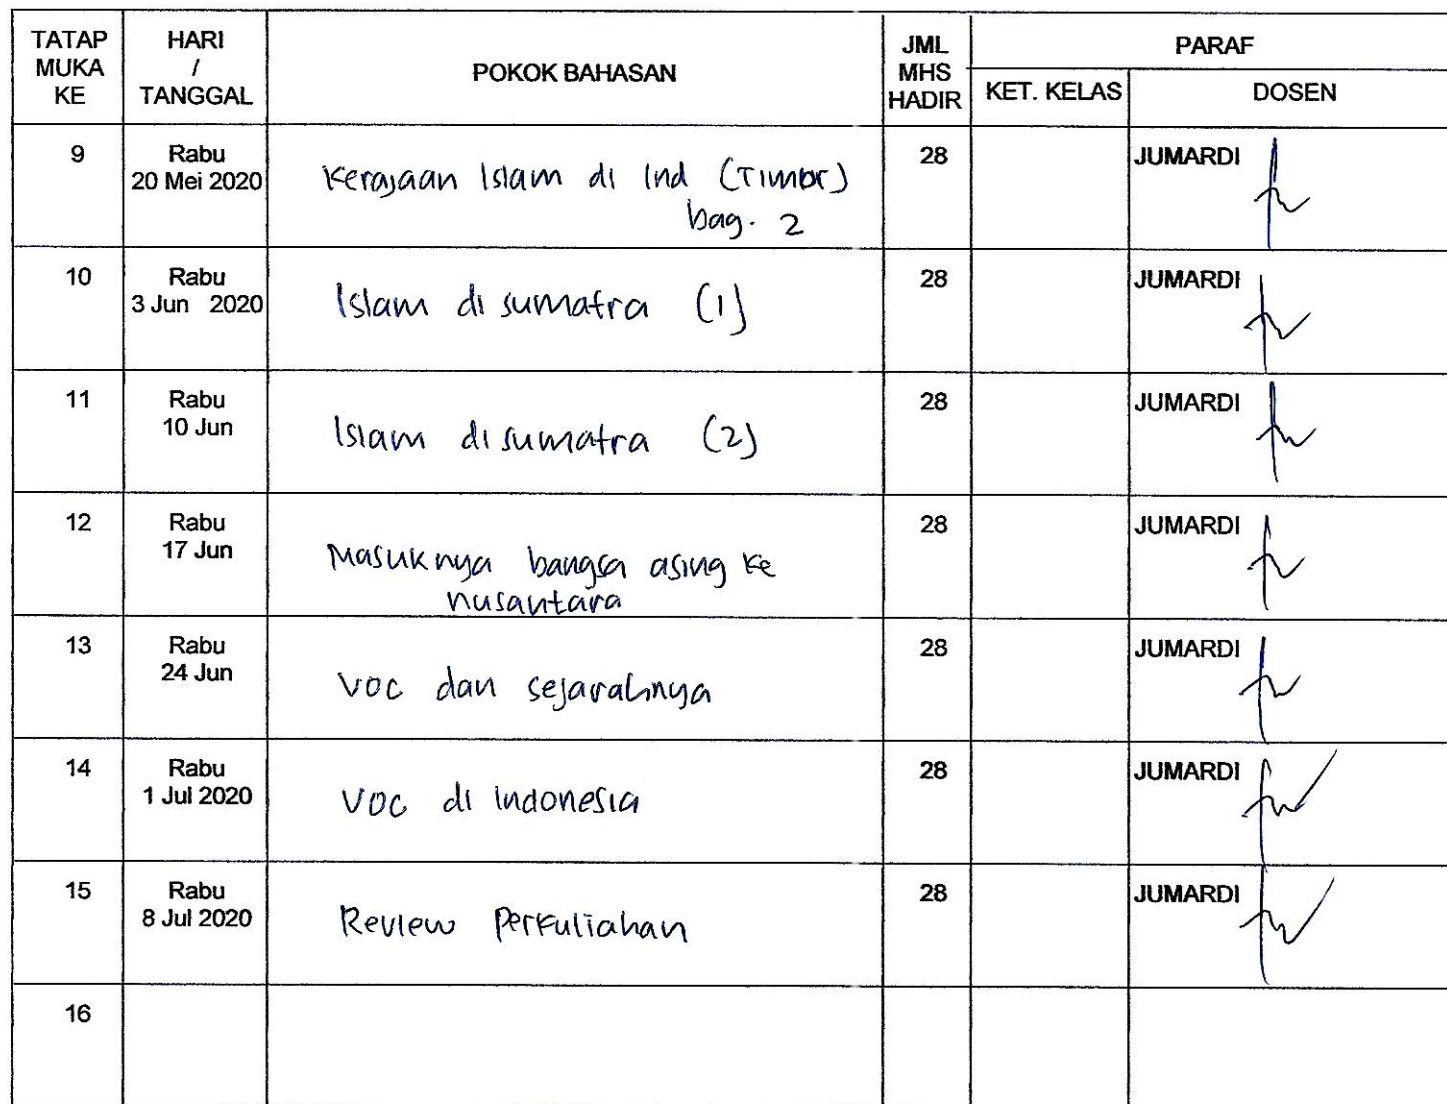 TATAP MUKA KE
HARI / TANGGAL
POKOK BAHASAN
JML MHS HADIR
PARAF
KET. KELAS
DOSEN
9
Rabu
20 Mei 2020
Kerajaan Islam di Ind (Timor)
bag. 2
28
JUMARDI
10
Rabu
3 Jun 2020
Islam di sumatra (1)
28
JUMARDI
11
Rabu
10 Jun
Islam di sumatra (2)
28
JUMARDI
12
Rabu
17 Jun
Masuknya bangsa asing ke
nusantara
28
JUMARDI
13
Rabu
24 Jun
VOC dan sejarahnya
28
JUMARDI
14
Rabu
1 Jul 2020
VOC di Indonesia
28
JUMARDI
15
Rabu
8 Jul 2020
Review Perkuliahan
28
JUMARDI
16